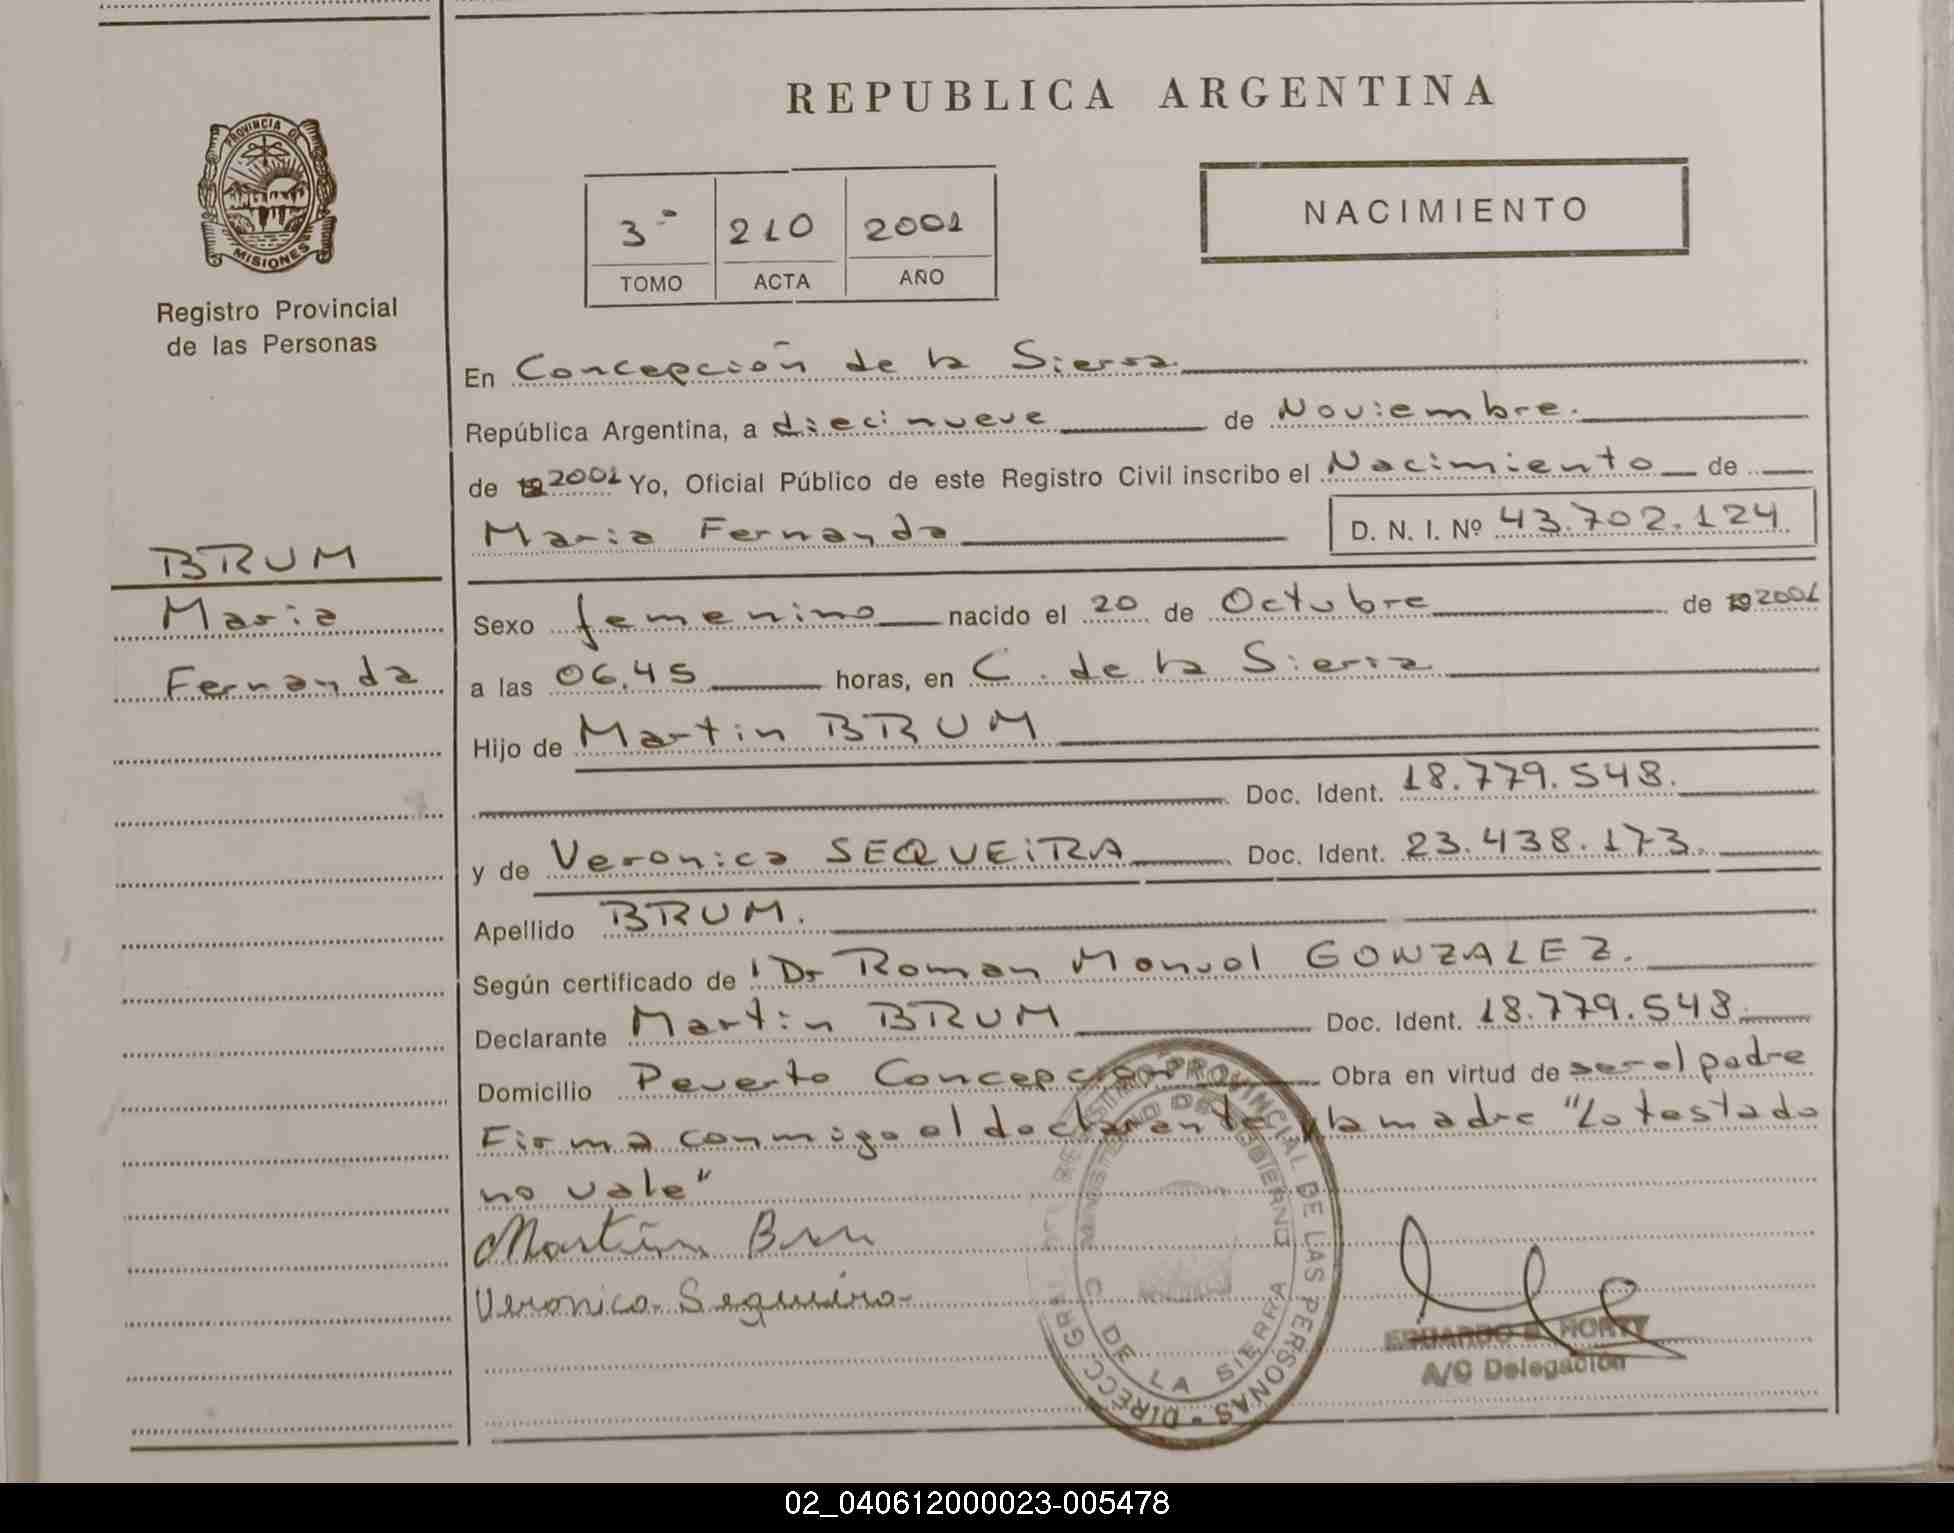 REPUBLICA ARGENTINA
PROVINCIA DE
MISIONES
Registro Provincial
de las Personas
3º 210 2001
TOMO ACTA AÑO
NACIMIENTO
En Concepción de la Sierra
República Argentina, a diecinueve de Noviembre.
de 19 2001 Yo, Oficial Público de este Registro Civil inscribo el Nacimiento de
Maria Fernanda D. N. I. Nº 43.702.124
BRUM
Maria
Fernanda
Sexo femenino nacido el 20 de Octubre de 19 2001
a las 06,45 horas, en C. de la Sierra
Hijo de Martin BRUM
Doc. Ident. 18.779.548.
y de Veronica SEQUEiRA Doc. Ident. 23.438.173.
Apellido BRUM.
Según certificado de Dr Roman Manuel GONZALEZ.
Declarante Martin BRUM Doc. Ident. 18.779.548.
Domicilio Puerto Concepcion Obra en virtud de ser el padre
Firma conmigo el declarante y la madre "Lo testado
no vale"
Martin Brum
Veronica Sequeira
DIRECC. GRAL. REGISTRO PROVINCIAL DE LAS PERSONAS
MINISTERIO DE GOBIERNO
C. DE LA SIERRA
EDUARDO HORTY
A/C Delegación
02_040612000023-005478